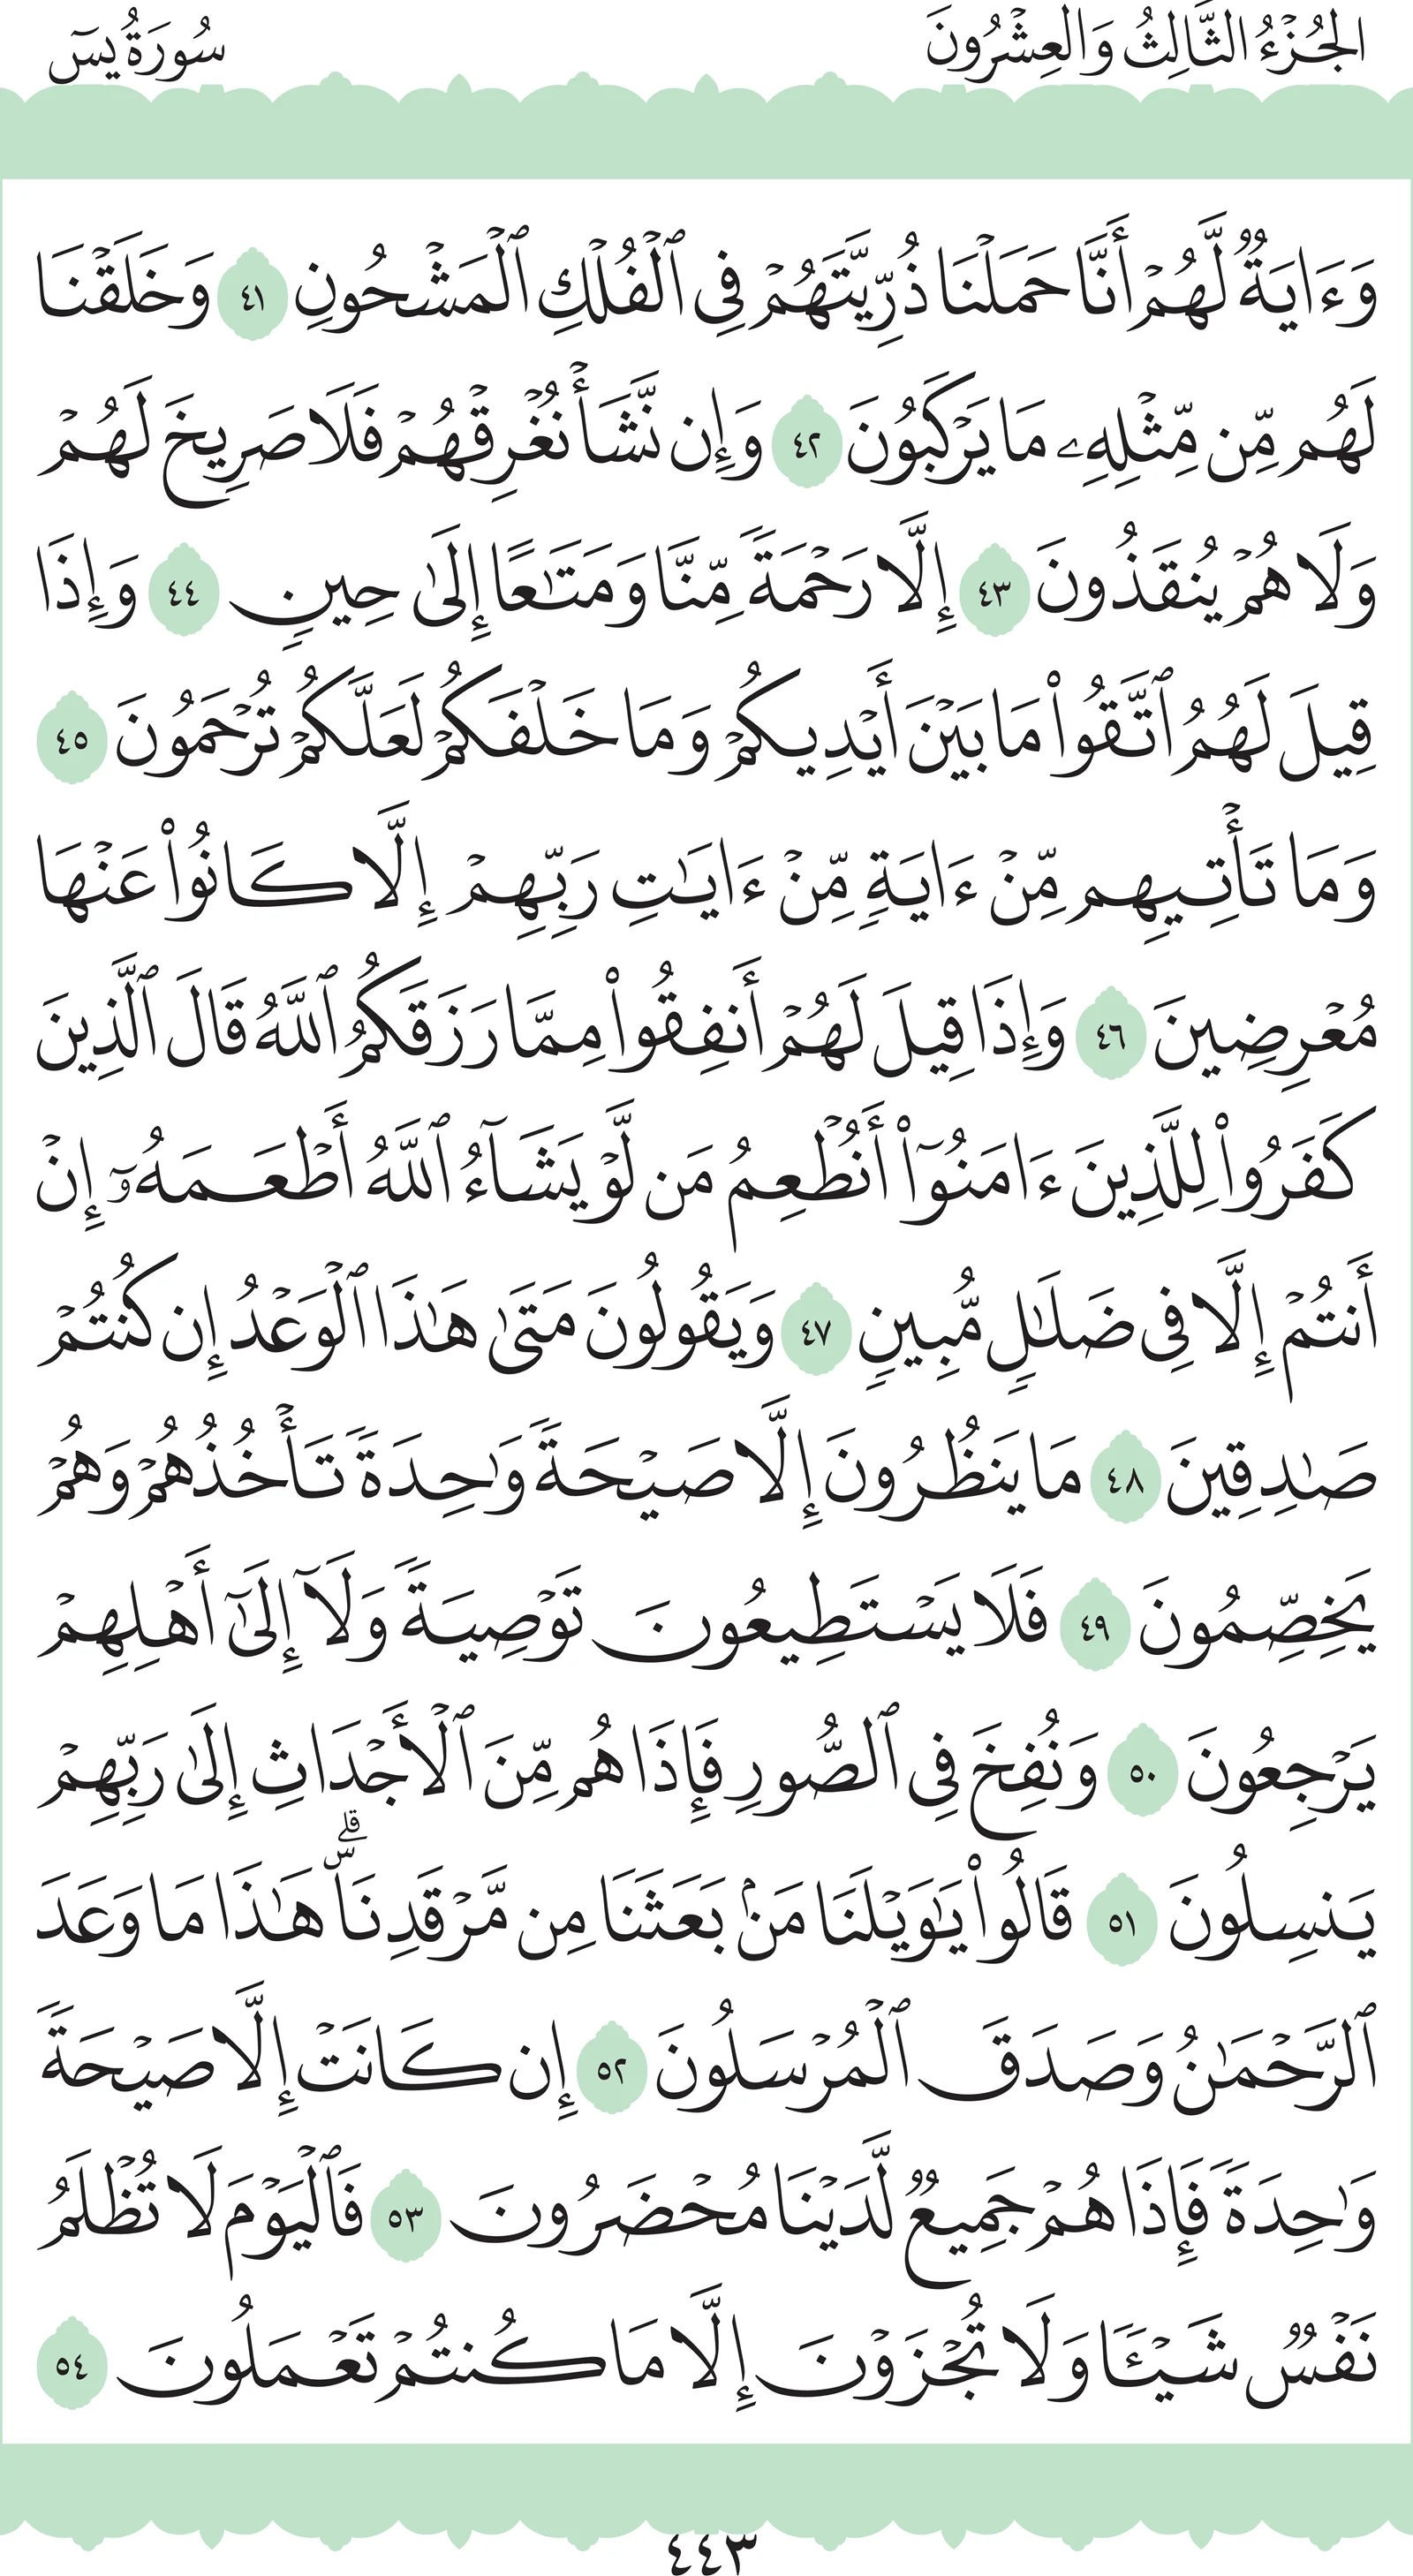 الجُزْءُ الثَّالِثُ وَالعِشْرُونَ
سُورَةُ يسٓ
وَءَايَةٌ لَّهُمْ أَنَّا حَمَلْنَا ذُرِّيَّتَهُمْ فِى ٱلْفُلْكِ ٱلْمَشْحُونِ ٤١ وَخَلَقْنَا
لَهُم مِّن مِّثْلِهِۦ مَا يَرْكَبُونَ ٤٢ وَإِن نَّشَأْ نُغْرِقْهُمْ فَلَا صَرِيخَ لَهُمْ
وَلَا هُمْ يُنقَذُونَ ٤٣ إِلَّا رَحْمَةً مِّنَّا وَمَتَٰعًا إِلَىٰ حِينٍ ٤٤ وَإِذَا
قِيلَ لَهُمُ ٱتَّقُوا۟ مَا بَيْنَ أَيْدِيكُمْ وَمَا خَلْفَكُمْ لَعَلَّكُمْ تُرْحَمُونَ ٤٥
وَمَا تَأْتِيهِم مِّنْ ءَايَةٍ مِّنْ ءَايَٰتِ رَبِّهِمْ إِلَّا كَانُوا۟ عَنْهَا
مُعْرِضِينَ ٤٦ وَإِذَا قِيلَ لَهُمْ أَنفِقُوا۟ مِمَّا رَزَقَكُمُ ٱللَّهُ قَالَ ٱلَّذِينَ
كَفَرُوا۟ لِلَّذِينَ ءَامَنُوٓا۟ أَنُطْعِمُ مَن لَّوْ يَشَآءُ ٱللَّهُ أَطْعَمَهُۥٓ إِنْ
أَنتُمْ إِلَّا فِى ضَلَٰلٍ مُّبِينٍ ٤٧ وَيَقُولُونَ مَتَىٰ هَٰذَا ٱلْوَعْدُ إِن كُنتُمْ
صَٰدِقِينَ ٤٨ مَا يَنظُرُونَ إِلَّا صَيْحَةً وَٰحِدَةً تَأْخُذُهُمْ وَهُمْ
يَخِصِّمُونَ ٤٩ فَلَا يَسْتَطِيعُونَ تَوْصِيَةً وَلَآ إِلَىٰٓ أَهْلِهِمْ
يَرْجِعُونَ ٥٠ وَنُفِخَ فِى ٱلصُّورِ فَإِذَا هُم مِّنَ ٱلْأَجْدَاثِ إِلَىٰ رَبِّهِمْ
يَنسِلُونَ ٥١ قَالُوا۟ يَٰوَيْلَنَا مَنۢ بَعَثَنَا مِن مَّرْقَدِنَا ۜ ۗ هَٰذَا مَا وَعَدَ
ٱلرَّحْمَٰنُ وَصَدَقَ ٱلْمُرْسَلُونَ ٥٢ إِن كَانَتْ إِلَّا صَيْحَةً
وَٰحِدَةً فَإِذَا هُمْ جَمِيعٌ لَّدَيْنَا مُحْضَرُونَ ٥٣ فَٱلْيَوْمَ لَا تُظْلَمُ
نَفْسٌ شَيْـًٔا وَلَا تُجْزَوْنَ إِلَّا مَا كُنتُمْ تَعْمَلُونَ ٥٤
٤٤٣